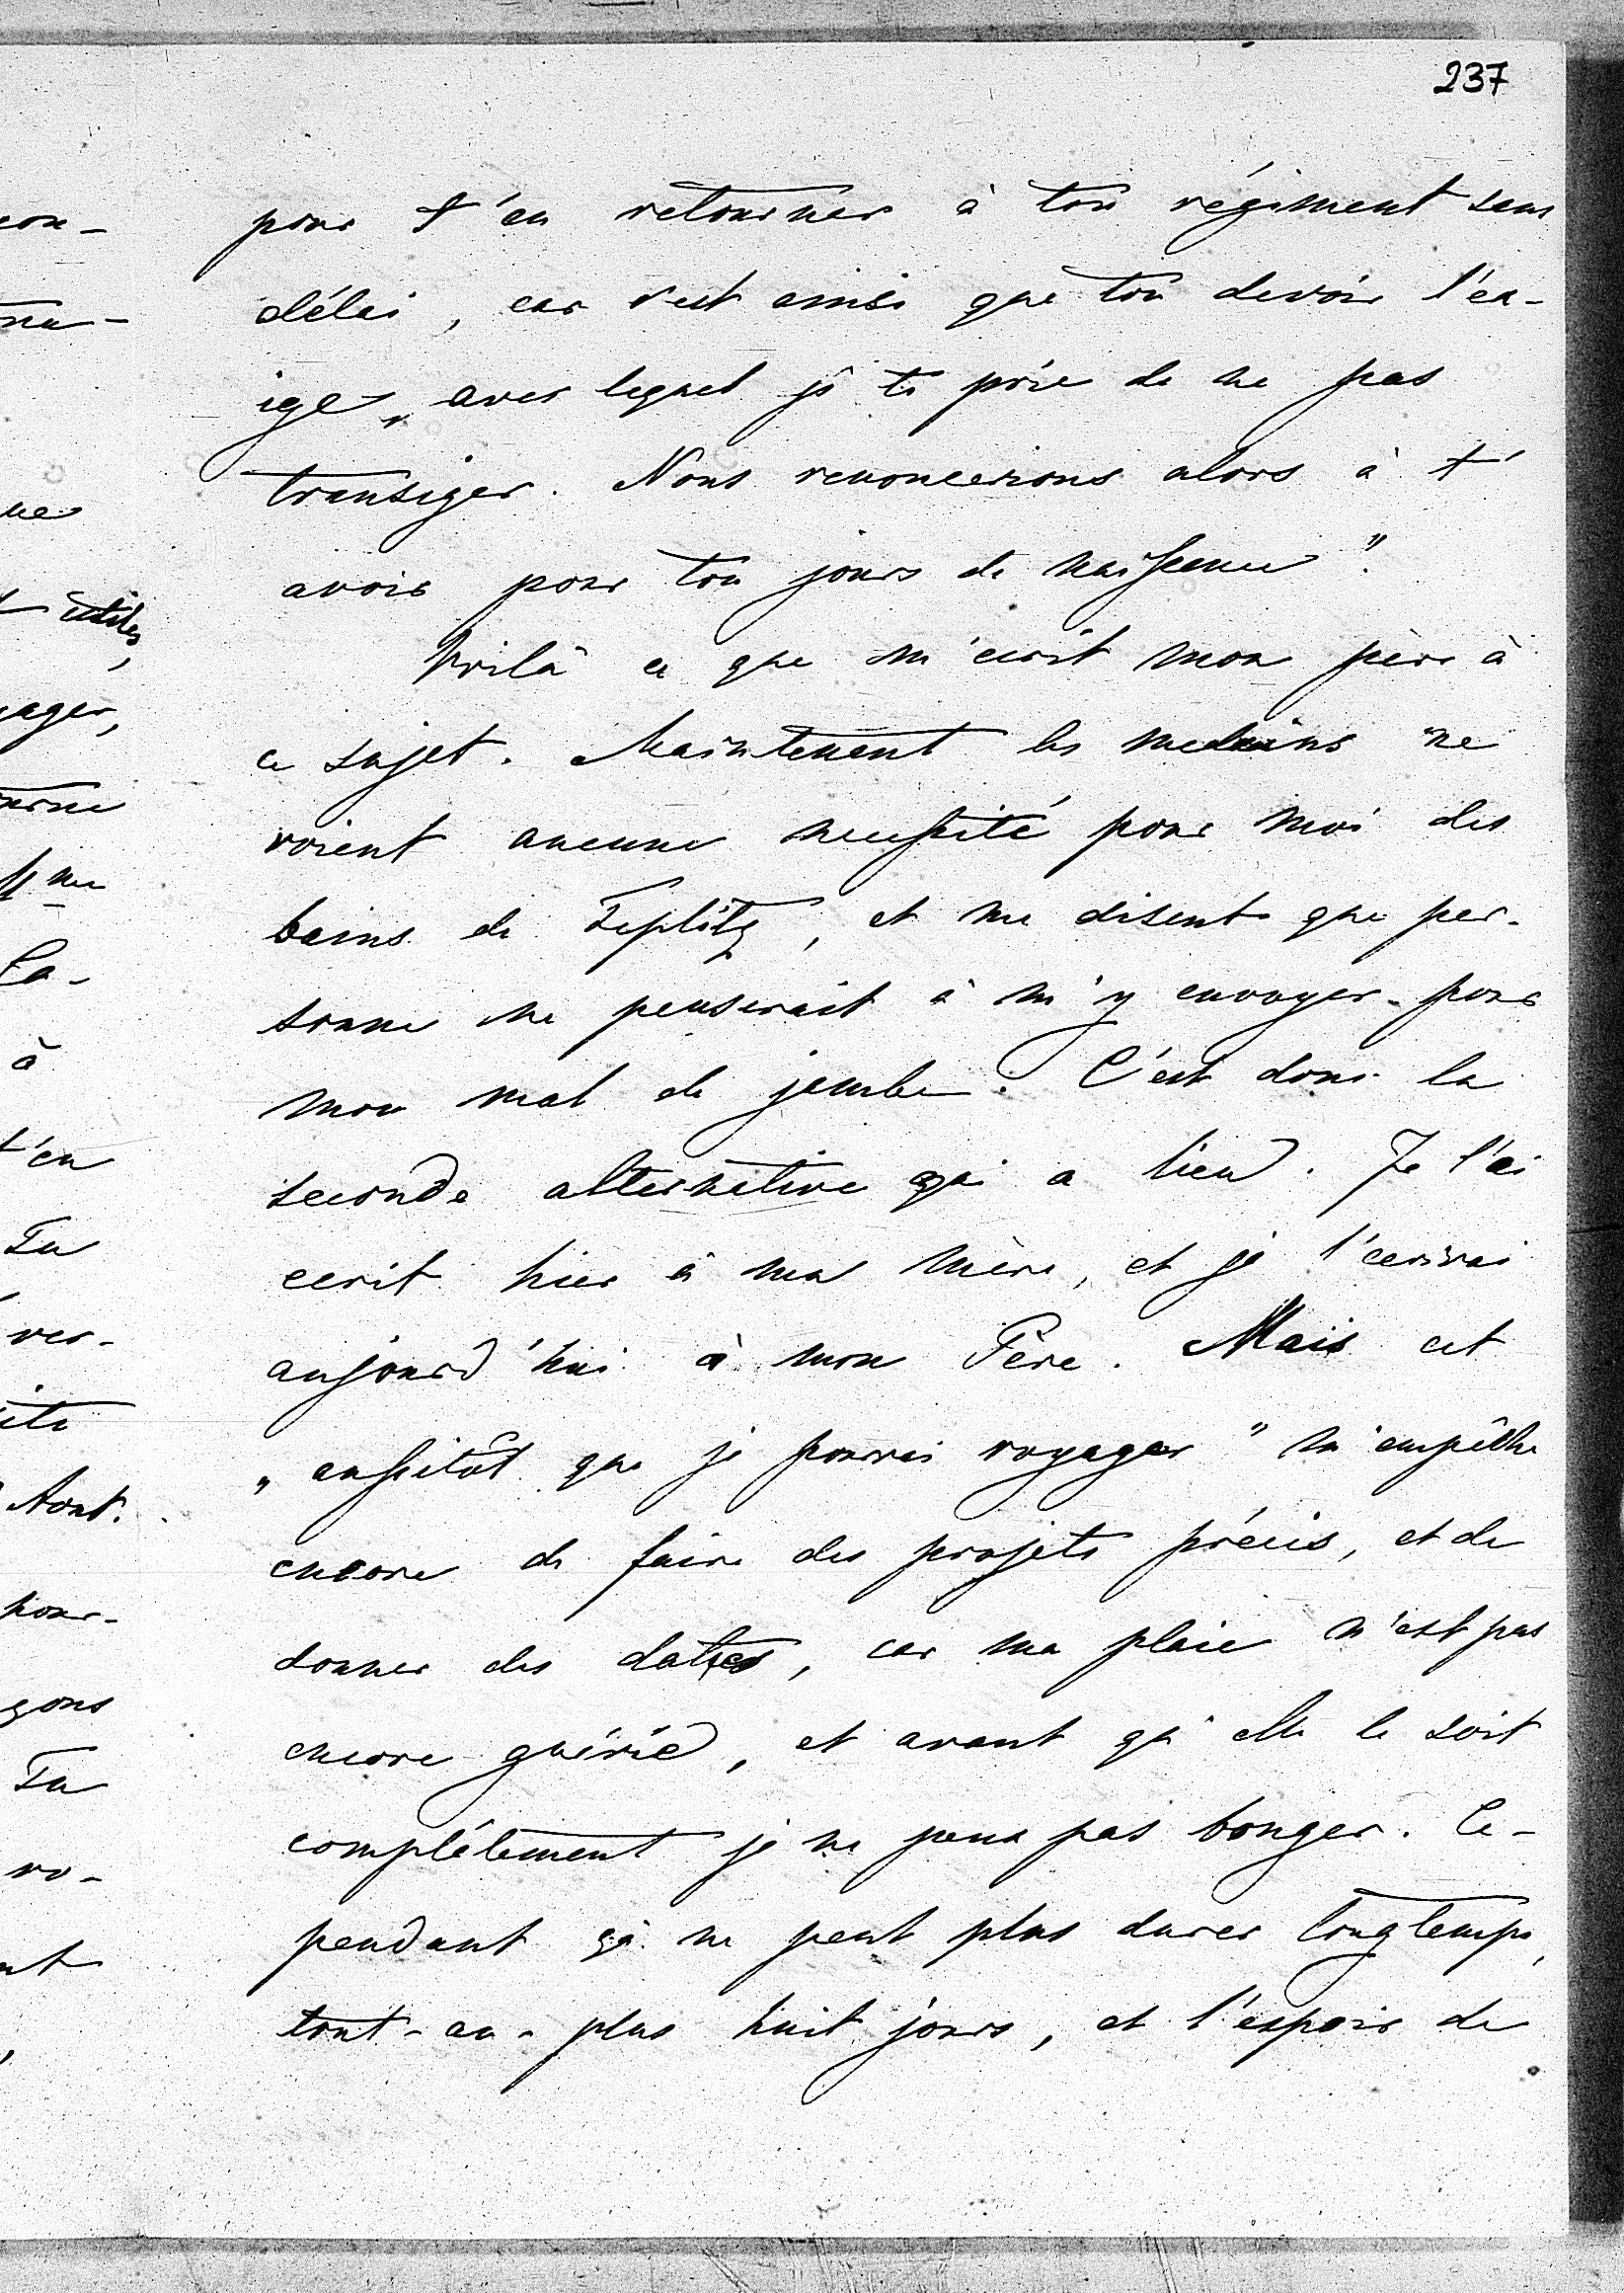 237
pour t'en retourner à ton régiment sans
délai, car c'est ainsi que ton devoir l'ex-
ige, avec lequel je te prie de ne pas
transiger. Nous renoncerions alors à t'
avoir pour ton jours de naissance".
Voilà ce que m'écrit mon père à
ce sujet. Maintenant les medecins ne
voient aucune necessité pour moi des
bains de Teplitz, et me disent que per-
sonne ne penserait à m'y envoyer pour
mon mal de jambe. C'est donc la
seconde alternative qui a lieu. Je l'ai
ecrit hier à ma mère, et je l'ecrirai
aujourd'hui à mon Père. Mais cet
„aussitôt que je pourrai voyager" m'empêche
encore de faire des projets précis, et de
donner des dates, car ma plaie n'est pas
encore guérie, et avant qu'elle le soit
complétement je ne peux pas bouger. Ce-
pendant çà ne peut plus durer longtemps,
tout-au-plus huit jours, et l'espoir de
utiles,
t'en
Tu
ver-
Aout.
Tu
à